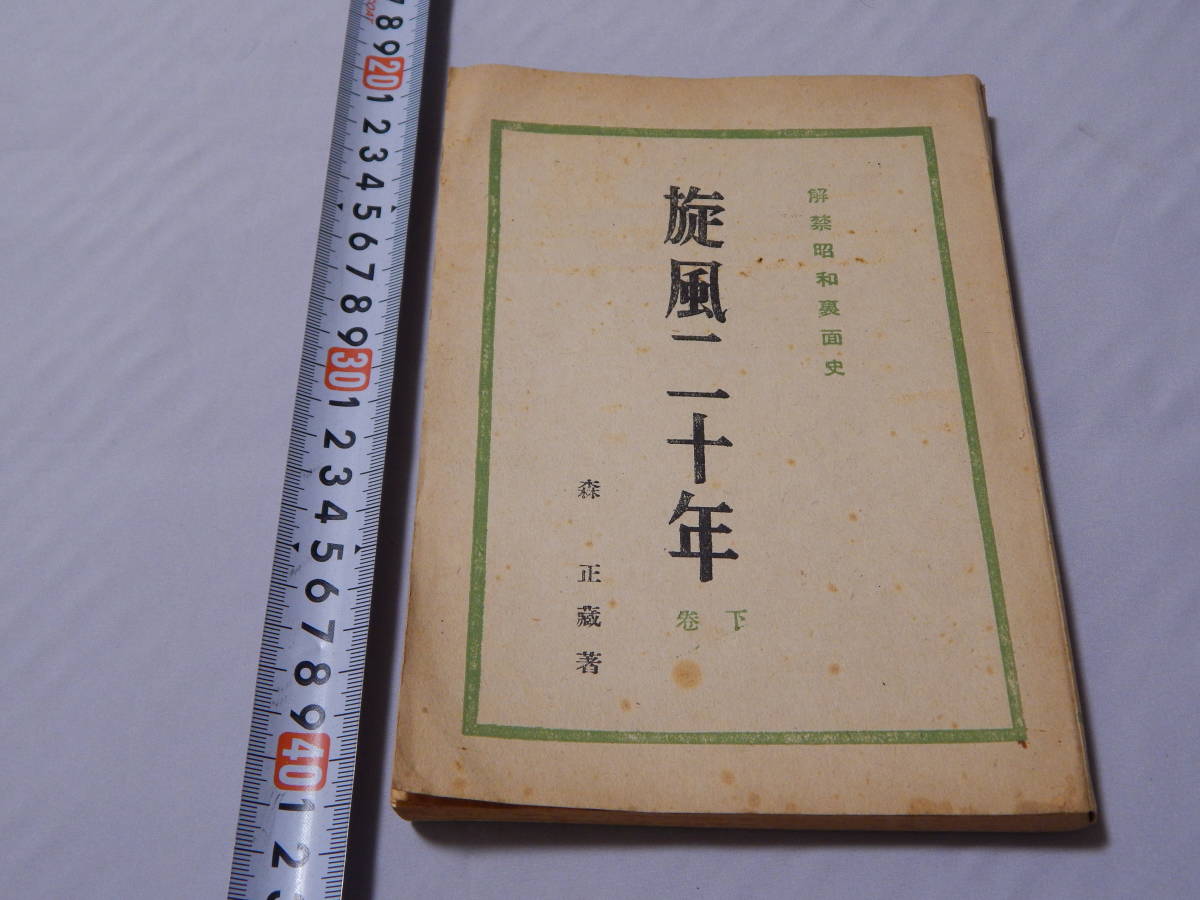 解禁昭和裏面史
旋風二十年
下卷
森正藏著
7 8 9 20 1 2 3 4 5 6 7 8 9 30 1 2 3 4 5 6 7 8 9 40 1 2 3